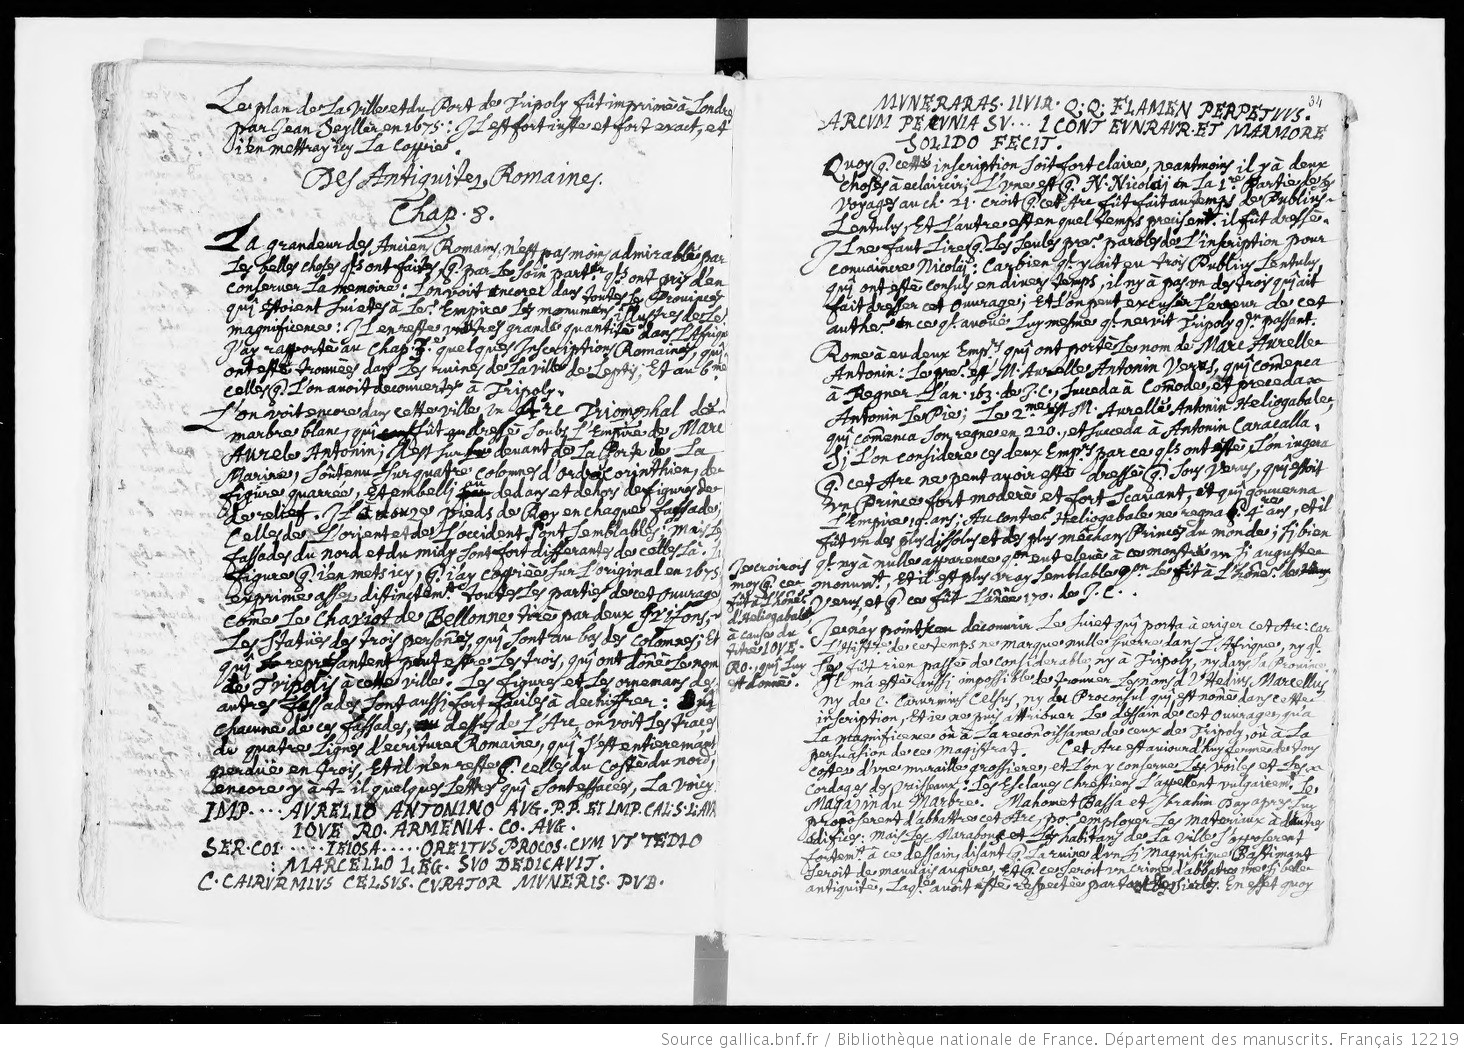 Le plan de La Ville et du Port de Tripoly fût imprimè à Londre
par Jean Seyller en 1675: Il est fort juste et fort exact, et
j'en mettray icy La Coppie.
Des Antiquitez Romaines.
Chap. 8.
La grandeur des Anciens Romains, n'est pas moins admirable par
Les belles choses qls ont faites, q. par Le soin partr qls ont pris d'en
conserver La memoire: Lon voit encore dans toutes les Provinces
quj estoient sujetes à Lr. Empire Les monumens illustres de Leur
magnificence: Il en reste une tres grande quantitè dans L'Afrique
J'ay rapportè au Chap. quelques Inscriptions Romaines, quj
ont estè trouvées dans Les ruines de La ville de Leptis, Et au 6me
celles q. L'on avoit decouvertes à Tripoly.
L'on voit encore dans cette ville un Arc Triomphal de
marbre blanc, quj fût dressè soubs L'Empire de Marc
Aurele Antonin; Il est devant de La Porte de La
Marine, soûtenu sur quatre colomnes d'ordre Corinthien, de
figure quarrée, Et embellj dedans et dehors de figures de
de relief. Il a onze pieds de Roy en chaque fassade;
Celles de L'orient et de L'occident sont semblables; Mais Les
fassades du nord et du midy sont fort differantes de celles La: La
figure q. j'en mets icy, q. j'ay coppiée sur L'original en 1675
exprime assez distinctemt. toutes Les parties de cet ouvrage
côme Le Chariot de Bellonne tirè par deux Grifons,
Les statues de trois persones, quj sont au bas des colomnes; Et
quj representent peut estre Les trois, quj ont dônè Le nom
de Tripolis à cette ville. Les figures et Les ornemans des
autres fassades sont aussj fort faciles à dechiffrer:
chacune de ces fassades, au dessus de L'Arc, on voit Les traces
de quatre Lignes d'ecriture Romaine, quj s'est entieremant
perdüe en trois, Et il n'en reste q. celles du Costè du nord,
encore y à-t-il quelques Lettres quj sont effacées, La voicy
IMP.... AVRELIO ANTONINO AVG. P.P. ET IMP. CAES. L. AVR
IOVE RO. ARMENIA. CO. AVG.
SER. COI..... IEIOSA..... OREITVS PROCOS. CVM VT TEDIO
: MARCELLO LEG. SVO DEDICAVIT.
C. CAIRVRMIVS CELSVS. CVRATOR MVNERIS. PVB.
Je croirois
moy q. cet
fût à L'hônr.
d'Heliogabale
à cause du
titre IOVE.
RO., quj Luy
est donnè.
34
MVNERARAS. IIVIR. Q. Q. FLAMEN PERPETVVS.
ARCVM PECVNIA SV... I CONT EVNRAVR. ET MARMORE
SOLIDO FECIT.
Quoy q. cette inscription soit fort claire, neantmoins il y à deux
choses à eclaircir; L'une est q. N. Nicolaj en La 1re Partie de ses
voyages au ch. 21. croit q. cet Arc fût fait au temps de Publius
Lentulus, Et L'autre est en quel temps precisemt. il fût dressè.
Il ne faut Lire q. Les seules pres. paroles de L'inscription pour
convaincre Nicolaj; Car bien ql. y ait eu trois Publius Lentulus
quj ont estè consuls en divers temps, il n'y à pas un des trois quj ait
fait dresser cet ouvrage; Et L'on peut excuser L'erreur de cet
authr. en ce ql. avoüe Luy mesme ql. ne vit Tripoly qn. passant.
Rome à eu deux Empr. quj ont portè Le nom de Marc Aurelle
Antonin: Le pre. est M. Aurelle Antonin Verus, quj cômença
à Regner L'an. 163. de J.C., succeda à Cômode, et preceda
Antonin Le Pie; Le 2me est M. Aurelle Antonin Heliogabale,
quj cômença son regne en 220., et succeda à Antonin Caracalla.
Sj L'on considere ces deux Empr. par ce qls ont estè, L'on jugera
q. cet Arc ne peut avoir estè dressè q. sous Verus, quj estoit
un Prince fort moderè et fort scavant, et quj gouverna
L'Empire 9. ans; Au contre. Heliogabale ne regna q. 4 ans, et il
fût un des plus dissolus et des plus méchans Princes du monde; sj bien
ql. n'y à nulle apparence qon eut elevè à ce monstre un sj auguste
monumt. Et il est plus vray semblable qon Le fit à L'hônr. de
Verus, et q. ce fût L'ânée 170. de J.C..
Je n'ay point sceu decouvrir Le sujet quj porta à eriger cet Arc: Car
L'Histre. de ce temps ne marque nulle guerre dans L'Afrique, ny ql.
se fût rien passè de considerable, ny à Tripoly, ny dans sa Province.
Il m'a estè aussj impossible de trouver Les noms d'. Hedius Marcellus
ny de C. Carurmius Celsus, ny du Proconsul quj est nômè dans cette
inscription, Et je ne puis attribuer Le dessain de cet ouvrage, qu'a
La magnificence ou à La reconoissance de ceux de Tripoly, ou à La
persuasion de ce magistrat. Cet Arc est aujourd'huy fermè de tous
costez d'une muraille grossiere, et L'on y conserve Les voiles et Les
Cordages des vaisseaux: Les Esclaves Chrestiens L'appellent vulgairemt. Le
Magazin du Marbre. Mahomet Bassa et Ibrahim Day apres Luy
proposerent d'abbattre cet Arc, po. employer Les materiaux à d'autres
edifices; Mais Les Marabous, et Les habitans de La ville s'opposerent
fortemt. à ce dessain, disant q. La ruine d'un sj Magnifique Bastimant
seroit de mauvais augure, Et q. ce seroit un crime d'abbatre une sj belle
antiquitè, Laqle. avoit estè respectée par tant de siecles. En effet quoy
Source gallica.bnf.fr / Bibliothèque nationale de France. Département des manuscrits. Français 12219